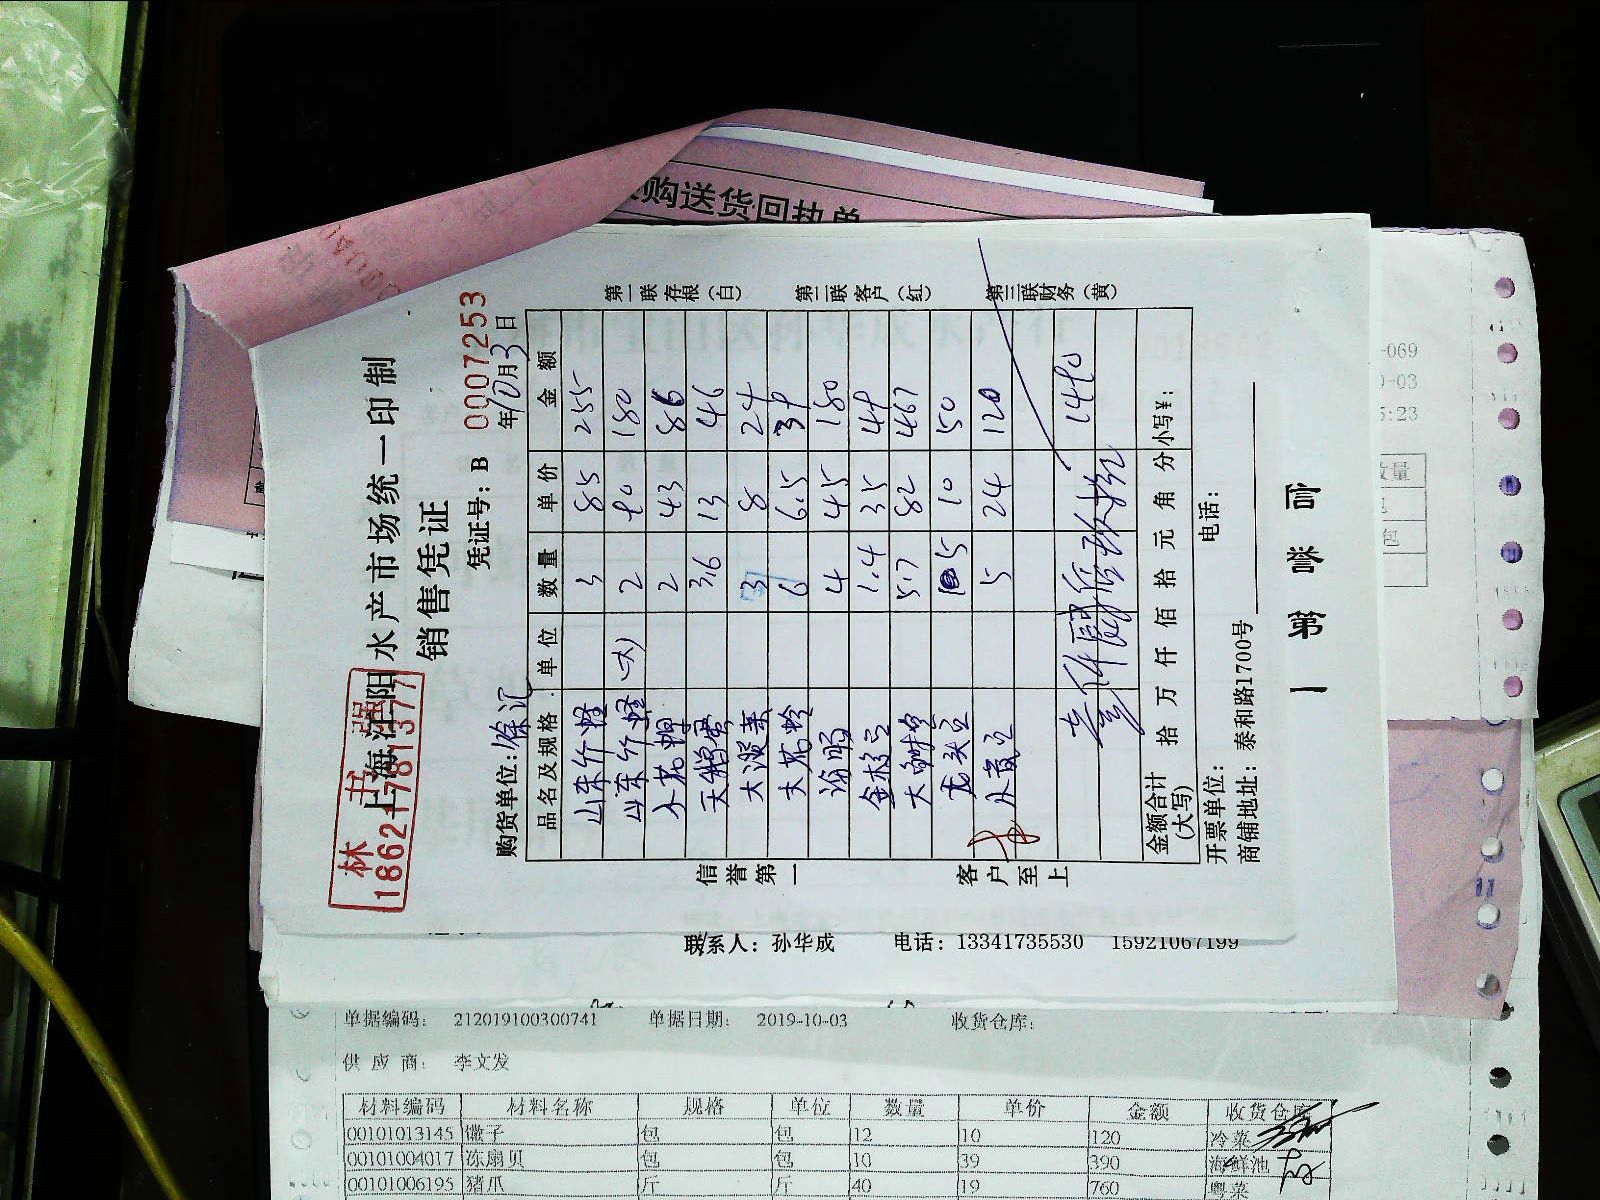 购送货回执单
林 书 强
18621781377
上海江阳水产市场统一印制
销售凭证
凭证号：B 0007253
购货单位：徐汇 年10月3日
品名及规格 单位 数量 单价 金额
山东竹蛏 3 85 255
山东竹蛏 (大) 2 90 180
小花螺 2 43 86
天鹅蛋 3.6 13 46
大淡菜 3 8 24
大花蛤 6 6.5 39
海肠 4 45 180
1.4 35 49
大 5.7 82 467
龙头 5 10 50
5 24 120
1490
金额合计
(大写) 拾 万 仟 佰 拾 元 角 分 小写¥：
开票单位： 电话：
商铺地址：泰和路1700号
信誉第一
客户至上
第一联存根(白)
第二联客户(红)
第三联财务(黄)
信 誉 第 一
联系人：孙华成 电话：13341735530 15921067199
-069
-03
5:23
数量
包
单据编码： 212019100300741 单据日期： 2019-10-03 收货仓库：
供 应 商： 李文发
材料编码 材料名称 规格 单位 数量 单价 金额 收货仓库
00101013145 馓子 包 包 12 10 120 冷菜
00101004017 冻扇贝 包 包 10 39 390 海鲜池
00101006195 猪爪 斤 斤 40 19 760 粤菜